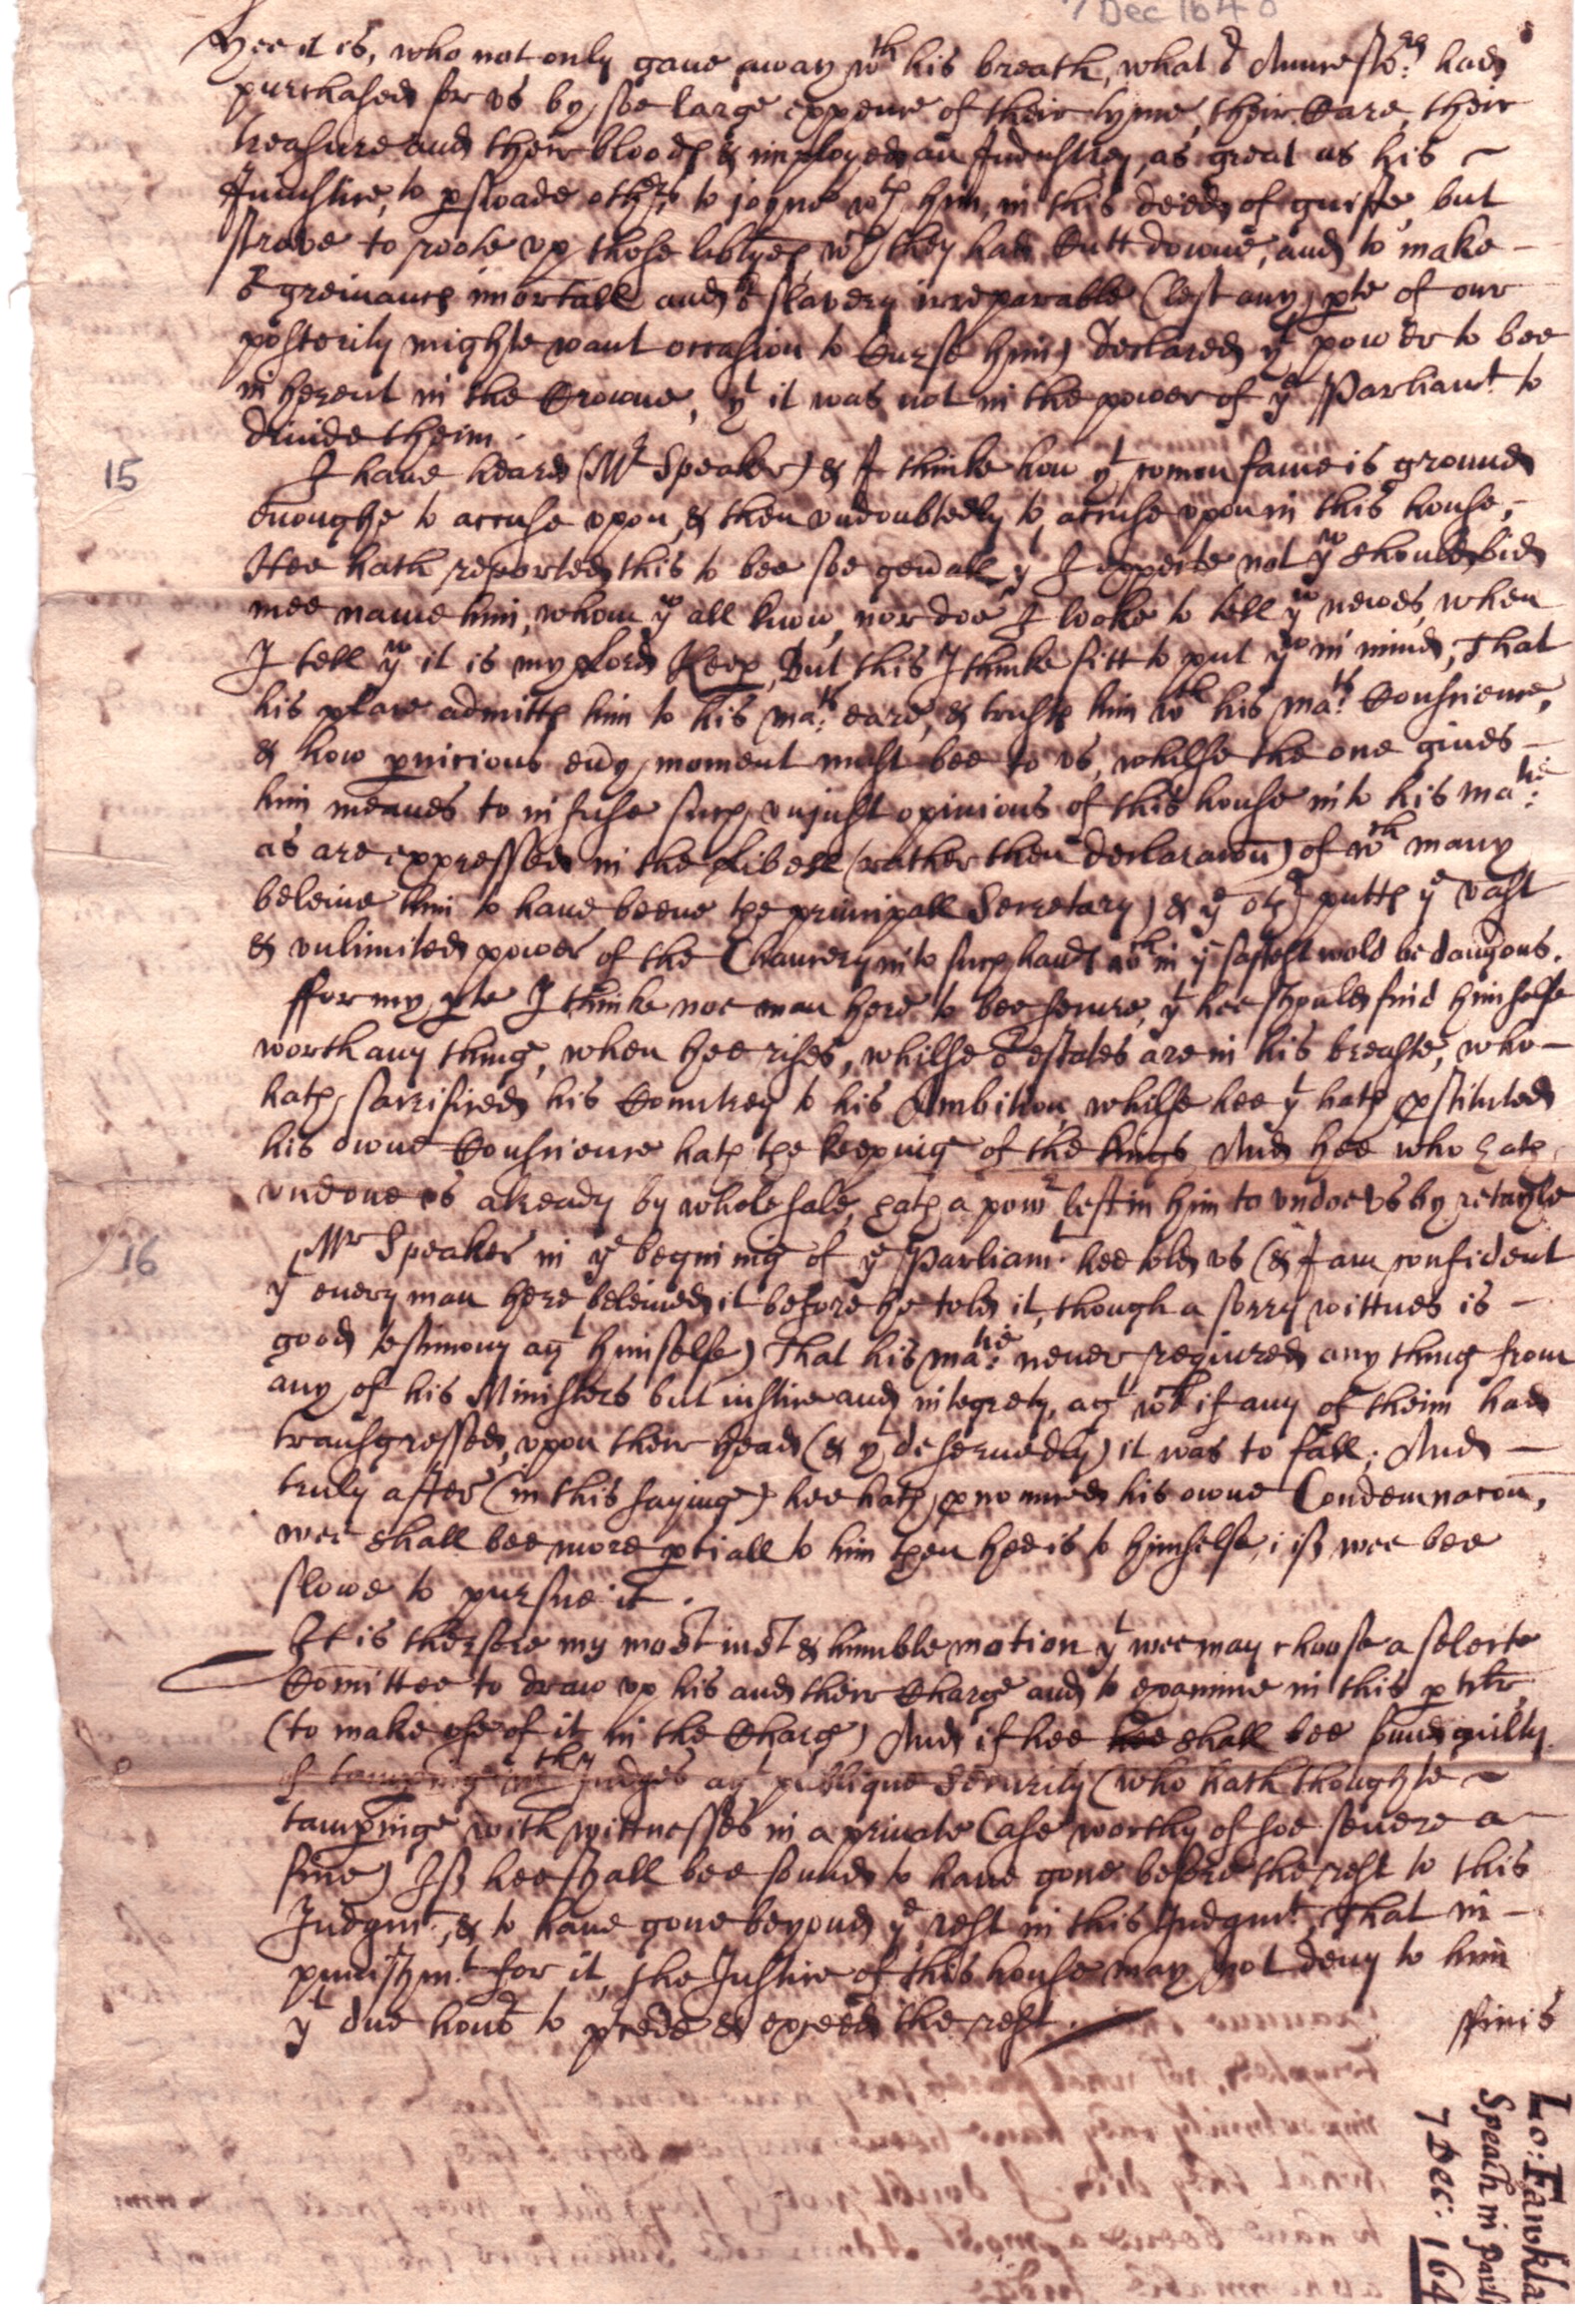 7 Dec 1640
Hee it is, who not only gaue away wth his breath, what or Auncestors had
purchased for vs by soe large expence of their tyme, their Care, their
treasure and their bloods & imployed an Industrey, as great as his
Iniustice, to pswade others to joyne wth him, in this deede of guifte, but
strove to roote vp those libtyes, wch they had Cutt downe, and to make
or greivances imortall and or slavery irreparable (lest any pte of our
posterity mighte want occasion to Curse him) declared yt power to bee
inherent in the Crowne, yt it was not in the power of ye Parliamt to
divide theim.
15
I haue heard (Mr Speaker) & I thinke how yt comon fame is ground
enoughe to accuse vpon, & then vndoubtedly to accuse vpon in this house,
Hee hath reported this to bee soe gerall, yt I expecte not yu should bid
mee name him, whom yu all know, nor doe I looke to tell yu newes, when
I tell yu it is my Lord Keep, But this I thinke fitt to put yu in mind, That
his place admitts him to his mats: eare, & trusts him wth his mats: Conscience,
& how pnicious evy moment must bee to vs, whilse the one giues
him meanes to infuse such vnjust opinions of this house into his matie:
as are expressed in the Libell (rather then declaracon) of wch many
beleiue him to haue beene the principall Secretary) & ye othr putts ye vast
& vnlimited power of the Chauncery into such hands wch in ye safest wold be dangous.
ffor my pte I thinke noe man here to bee secure, yt hee should find himselfe
worth any thing, when hee rises, whilse or estates are in his breaste, who
hath sacrificed his Countrey to his Ambition, whilse hee yt hath pstituted
his owne Conscience hath the keeping of the Kings And hee who hath
vndone vs already by whole sale, hath a powr left in him to vndoe vs by retayle
16
Mr Speaker in ye begining of ye Parliamt. hee told vs (& I am confident
yt every man here beleived it before he told it, though a sorry wittnes is
good testimony agt himselfe) That his matie: never required any thing from
any of his Ministers but iustice and integrety, agt wch if any of theim had
transgressed, vpon their heads (& yt deservedly) it was to fall; And
truly after (in this saying) hee hath pnounced his owne Condemnacon,
wee shall bee more ptiall to him then hee is to himselfe, if wee bee
slowe to pursue it.
It is therfore my most iust & humble motion yt wee may choose a selecte
Comittee to draw vp his and their Charge and to examine in this pticler
(to make vse of it in the Charge) And if hee hee shall bee found guilty
of tampinge wth the Judges agt publique Security (who hath thoughte
tampinge with wittnesses in a private Case worthy of soe severe a
fine) If hee shall bee found to haue gone before the rest to this
Judgmt, & to haue gone beyond ye rest in this Judgmt. That in
punishmt. for it, the Justice of this house may not deny to him
yt due honor to pcede & exceed the rest.
ffinis
Lo: Fawkla
Speach in Parli
7 Dec: 164